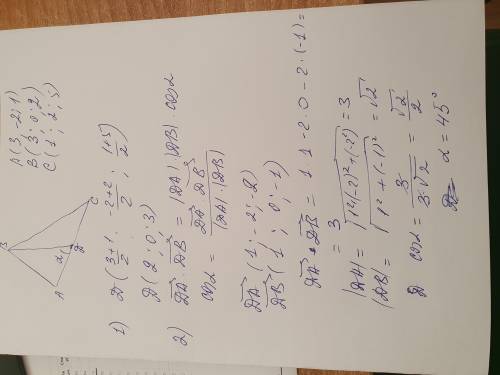 A(3; -2; 1)
B(3; 0; 2)
C(1; 2; 5)
B
C
A
α
D
1) D(3+1/2; -2+2/2; 1+5/2)
D(2; 0; 3)
2) DA · DB = |DA| · |DB| · cos α
cos α = DA · DB / |DA| · |DB|
DA (1; -2; -2)
DB (1; 0; -1)
DA · DB = 1·1 - 2·0 - 2·(-1) =
= 3
|DA| = √1²+(-2)²+(-2)² = 3
|DB| = √1²+(-1)² = √2
cos α = 3/3·√2 = √2/2
α = 45°